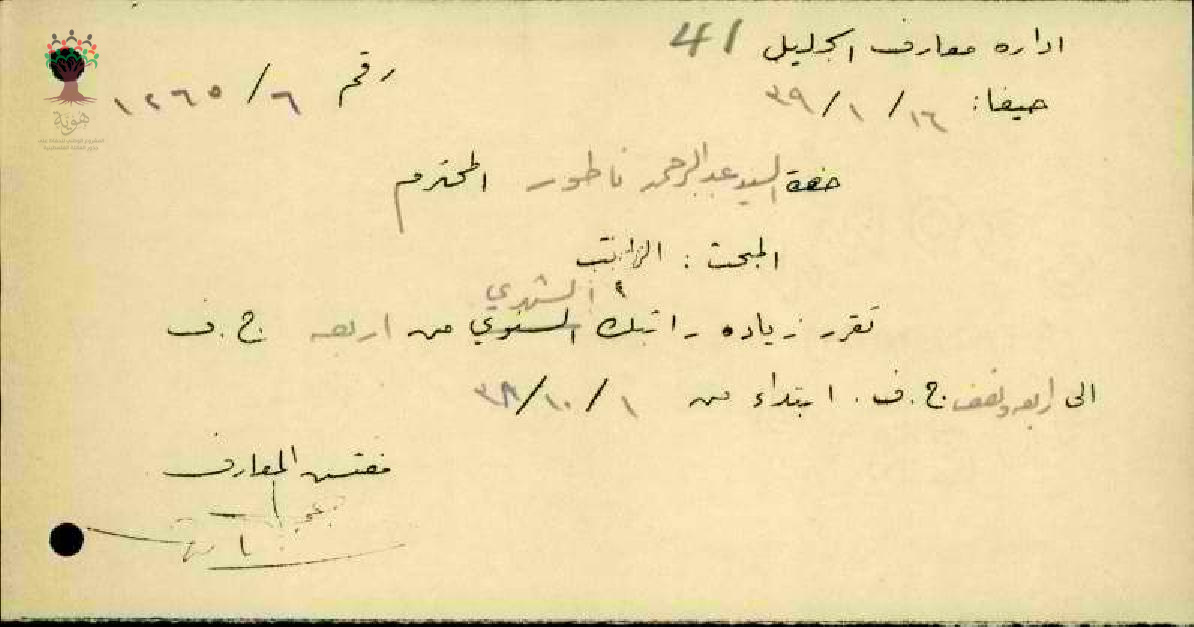 اداره معارف الجليل 41
رقم ٦/١٢٦٥
حيفا: ١٦/١/٣٩
حضرة السيد عبدالرحمن ناطور المحترم
المبحث: الراتب
الشهري
تقرر زياده راتبك السنوي من اربعه ج.ف
الى اربعه ونصف ج.ف. ابتداء من ١/١٠/٣٨
مفتش المعارف
هوية